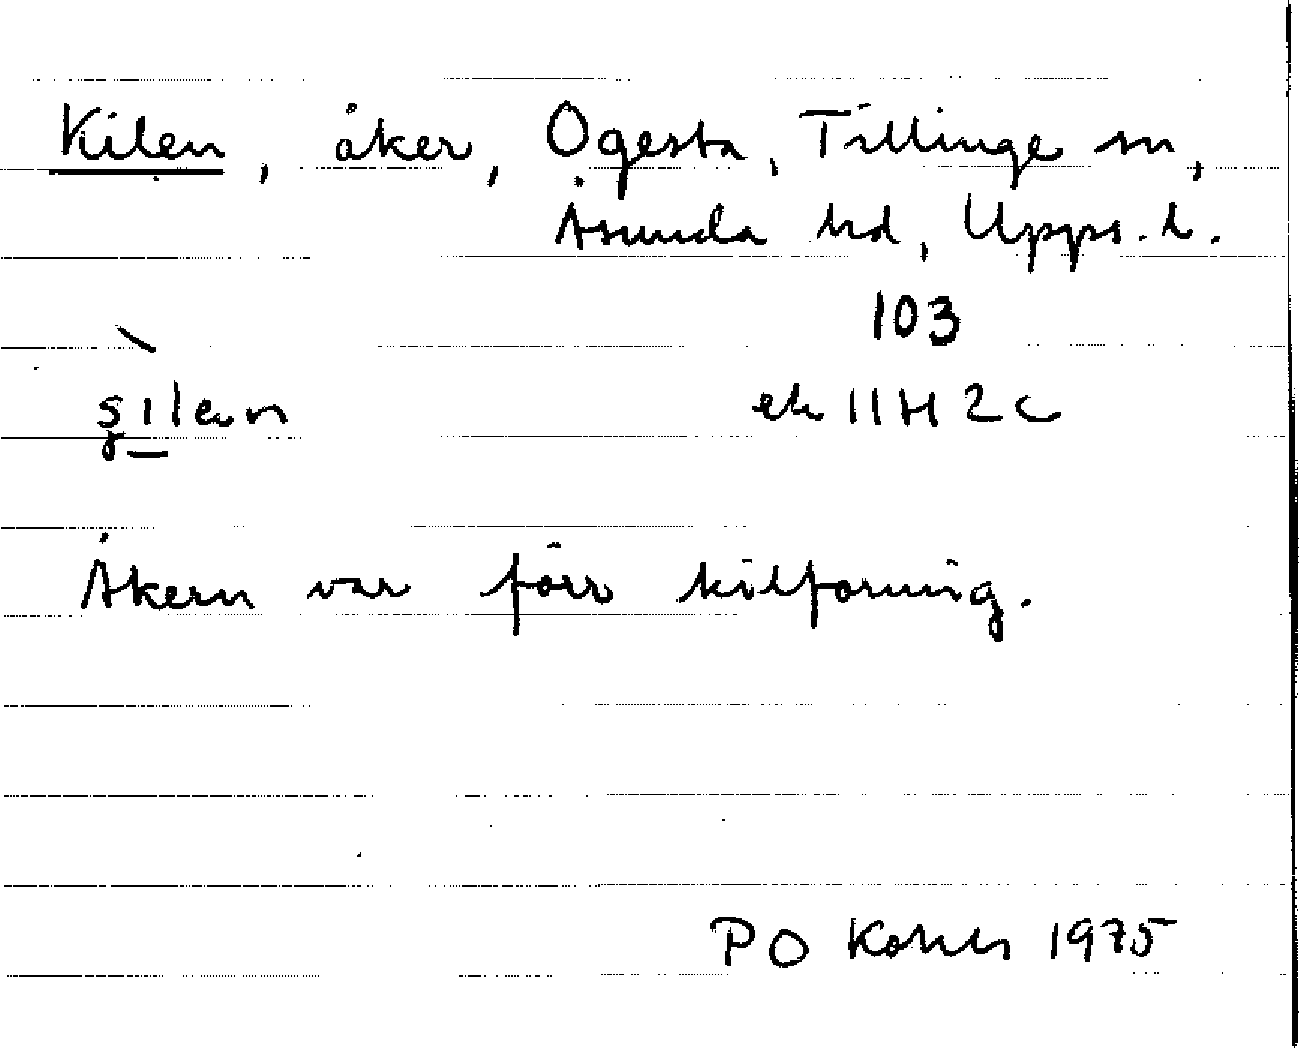 Kilen, åker, Ogesta, Tillinge sn,
Åsunda hd, Upps. l.
103
ek 11H 2c
Åkern var förr kilformig.
PO 1975